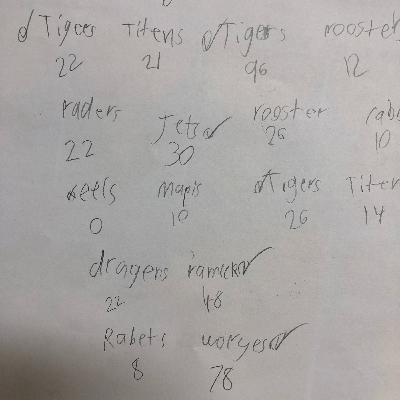 Tigers Titens Tigers rooster
22 21 96 12
raders Jets rooster
22 30 26 10
eels Mapis Tigers Titen
0 10 26 14
dragens
22 48
Rabets woryes
8 78